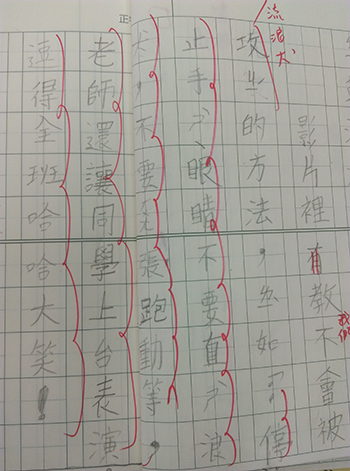 影片裡有教不會被
我們
流浪犬
攻的方法，如：停
止手眼睛不要直浪
犬，不張跑動等，
老師還讓同學上台表演
逗得全班哈哈大笑！